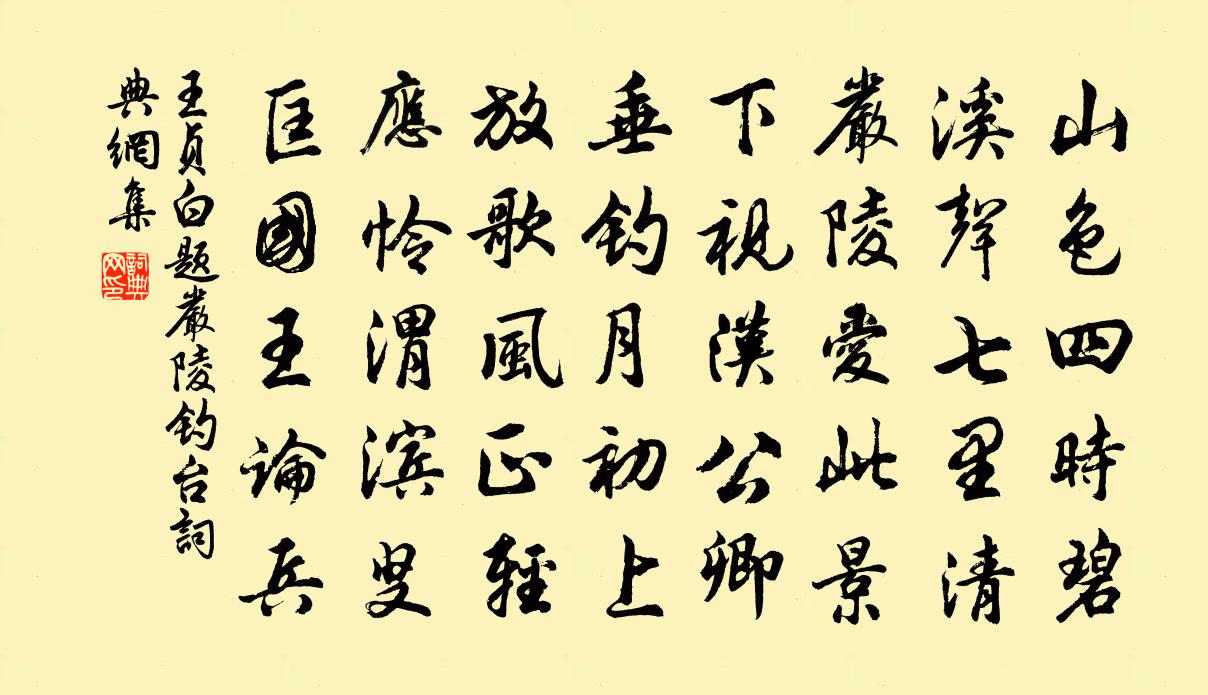 山色四時碧
溪聲七里清
嚴陵愛此景
下視漢公卿
垂釣月初上
放歌風正輕
應怜渭滨叟
匡國正論兵
王貞白題嚴陵釣台詞
典網集
詞典
网印